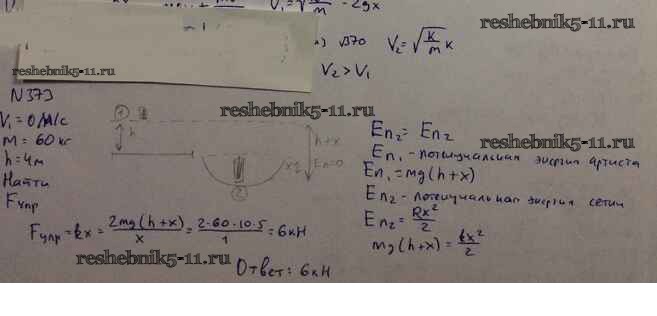 V₁=√ -2gx
reshebnik5-11.ru
√370 V₂=√k/m x
V₂>V₁
reshebnik5-11.ru
N373
V₁=0м/с
m=60кг
h=4м
Найти
Fупр
① h
reshebnik5-11.ru
h+x
Eп=0
x
②
Eп₂=Eп₂
reshebnik5-11.ru
Eп₁-потенциальная энергия артиста
Eп₁=mg(h+x)
Eп₂-потенциальная энергия сетки
Eп₂=kx²/2
mg(h+x)=kx²/2
Fупр=kx=2mg(h+x)/x=2·60·10·5/1=6кН
reshebnik5-11.ru
Ответ: 6кН